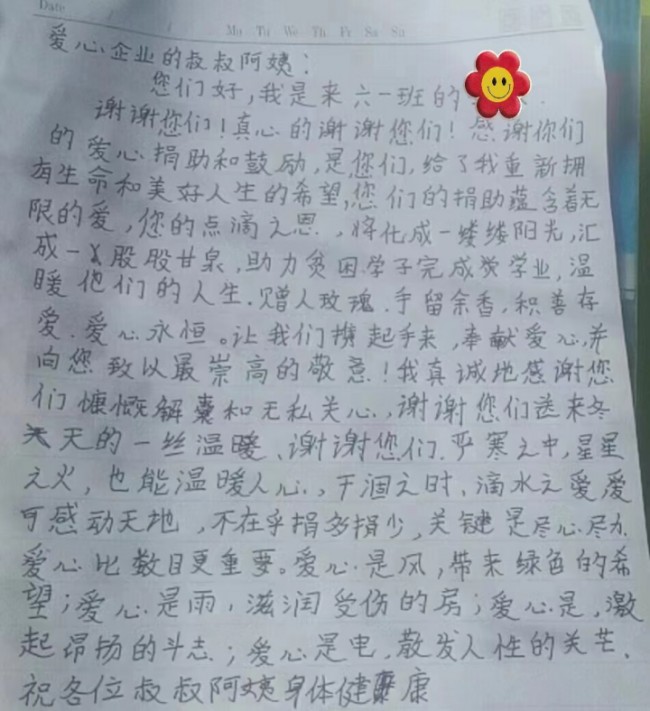 Date
Mo Tu We Th Fr Sa Su
爱心企业的叔叔阿姨：
您们好，我是来六一班的
谢谢您们！真心的谢谢您们！感谢你们
的爱心捐助和鼓励，是您们，给了我重新拥
有生命和美好人生的希望，您们的捐助蕴含着无
限的爱，您的点滴之恩，将化成一缕缕阳光，汇
成一股股甘泉，助力贫困学子完成学业，温
暖他们的人生．赠人玫瑰．手留余香，积善存
爱．爱心永恒。让我们携起手来，奉献爱心，并
向您致以最崇高的敬意！我真诚地感谢您
们慷慨解囊和无私关心，谢谢您们送来冬
天的一丝温暖、谢谢您们．严寒之中，星星
之火，也能温暖人心，干涸之时、滴水之爱，爱
可感动天地，不在乎捐多捐少，关键是尽心尽力
爱心比数目更重要。爱心是风，带来绿色的希
望；爱心是雨，滋润受伤的房；爱心是，激
起昂扬的斗志；爱心是电，散发人性的关芒．
祝各位叔叔阿姨身体健康